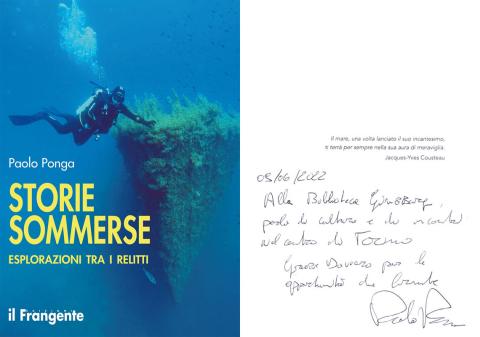 Paolo Ponga
STORIE
SOMMERSE
ESPLORAZIONI TRA I RELITTI
il Frangente
Il mare, una volta lanciato il suo incantesimo,
ti terrà per sempre nella sua aura di meraviglia.
Jacques-Yves Cousteau
Alla Biblioteca Ginzburg,
di cultura e di
nel centro di Torino
Grazie Davvero per le
opportunità
Paolo